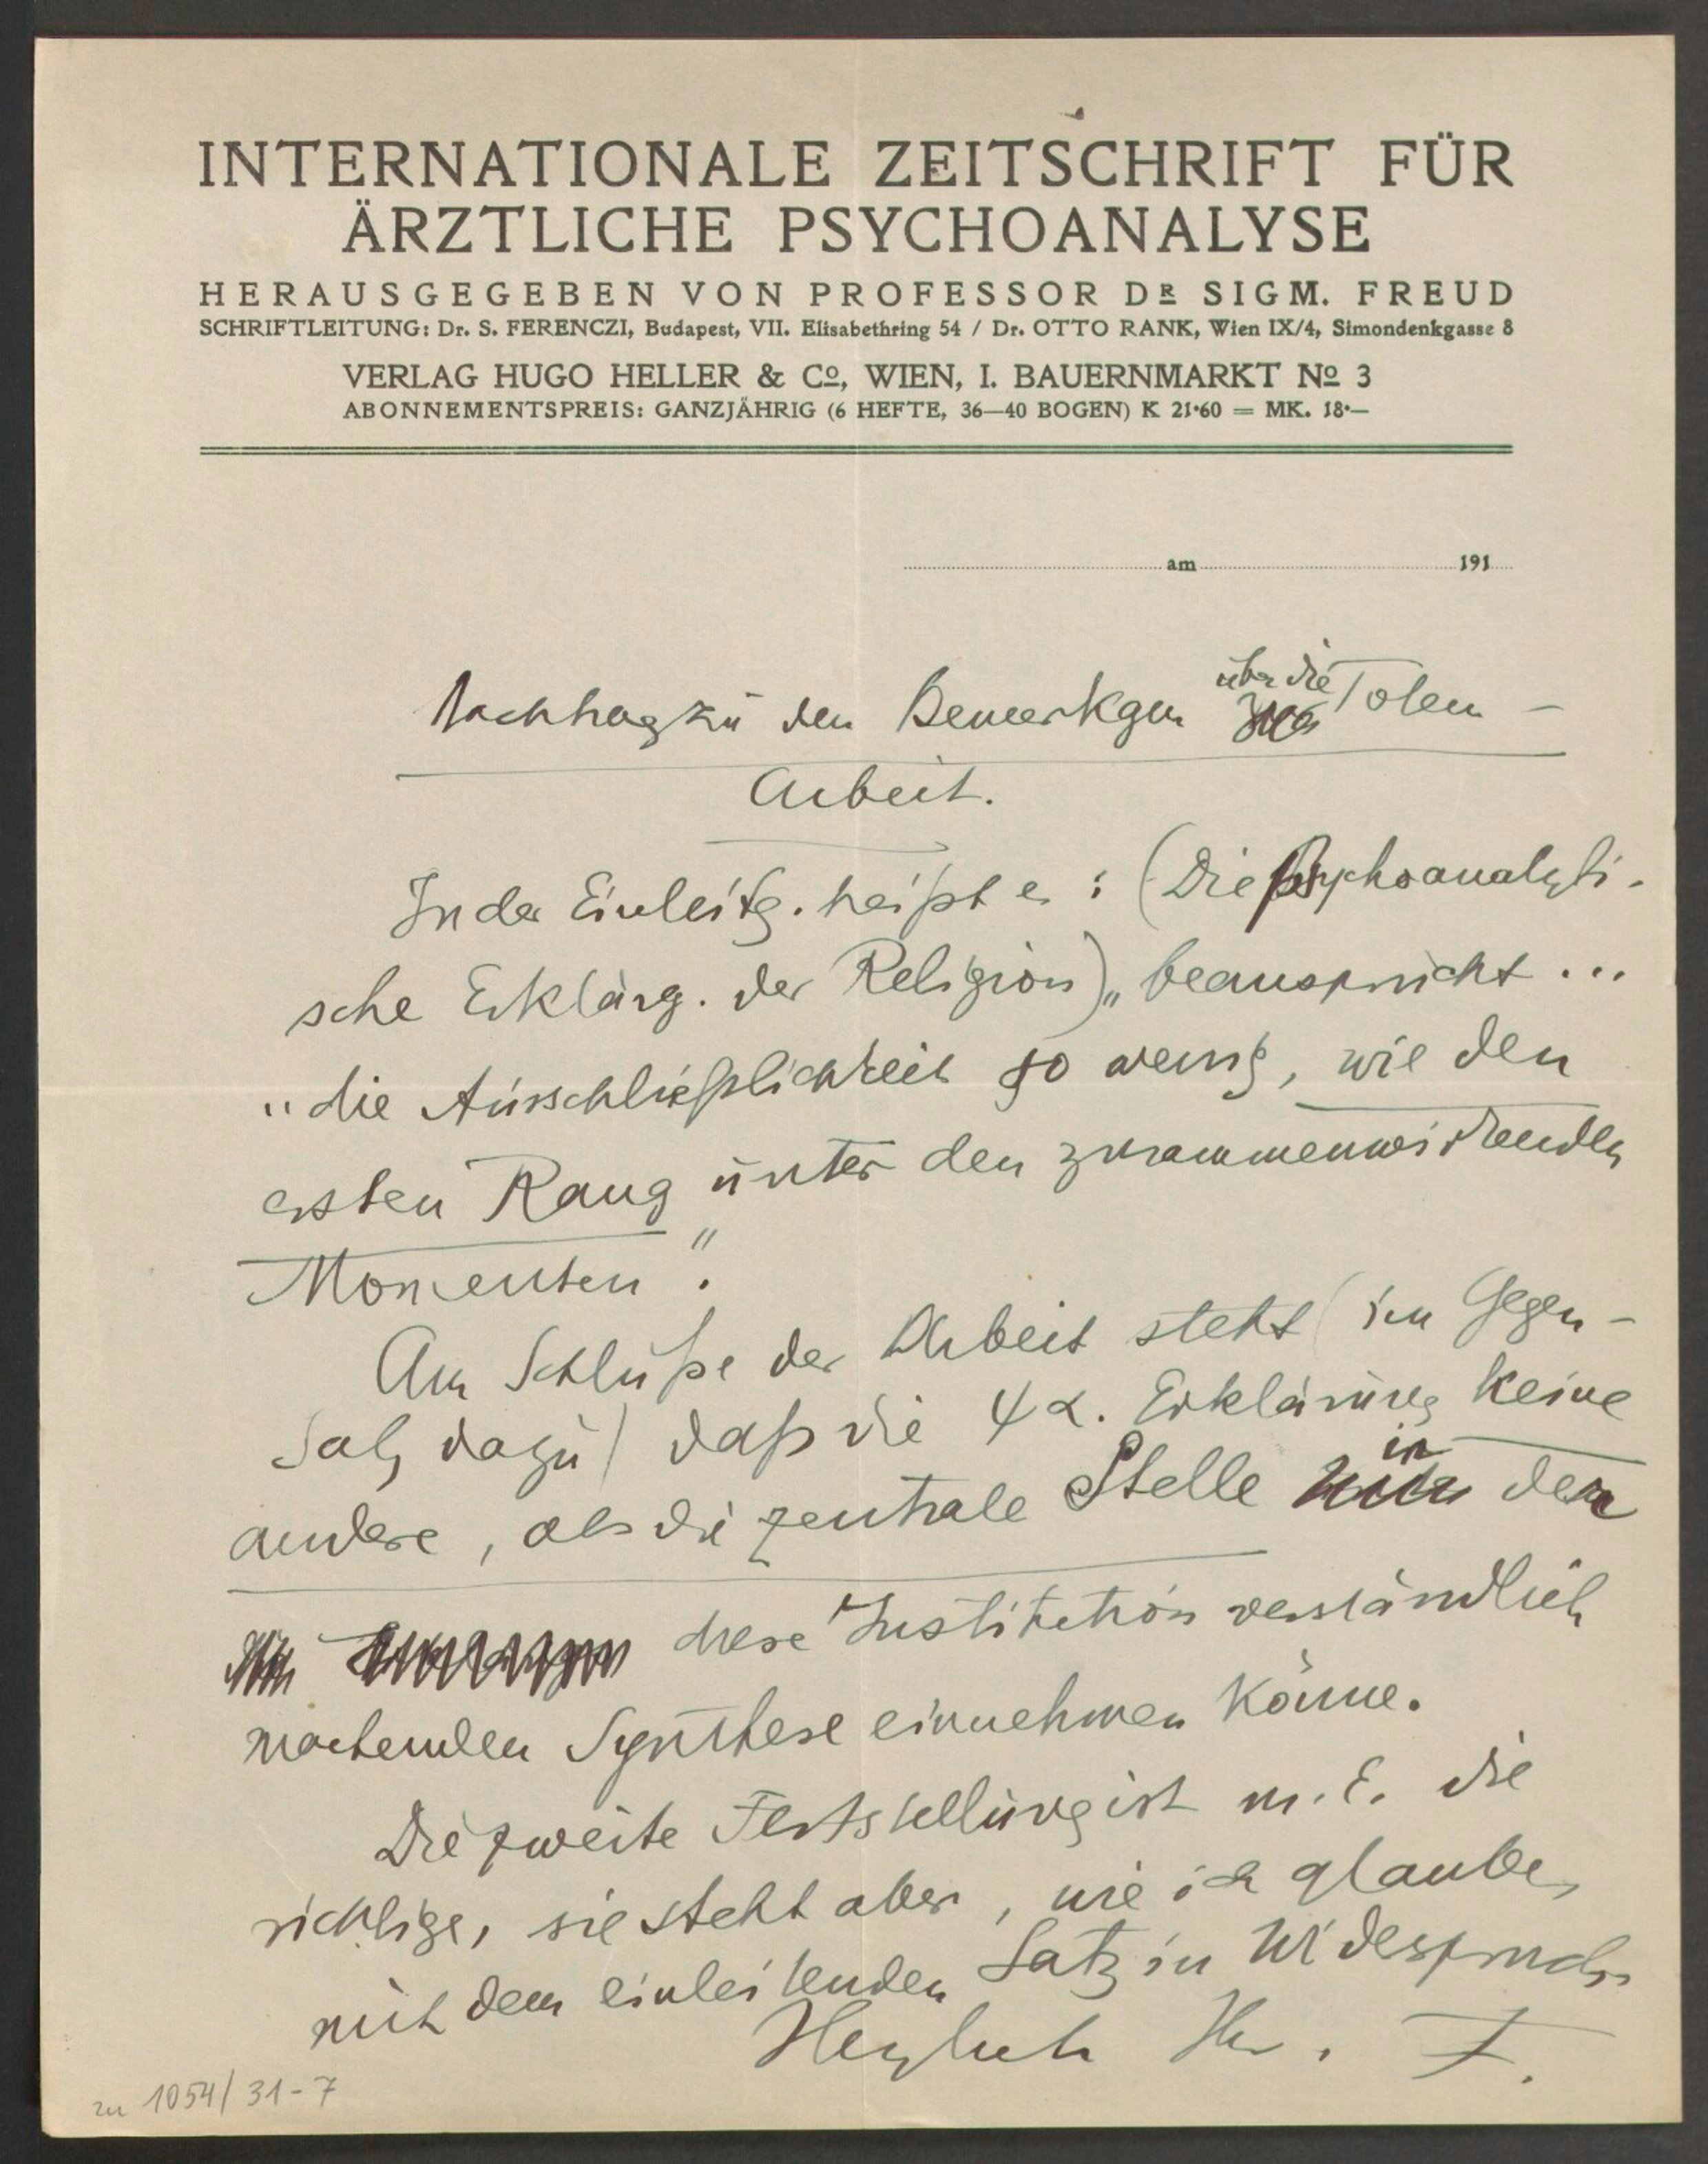 INTERNATIONALE ZEITSCHRIFT FÜR
ÄRZTLICHE PSYCHOANALYSE
HERAUSGEGEBEN VON PROFESSOR DR SIGM. FREUD
SCHRIFTLEITUNG: Dr. S. FERENCZI, Budapest, VII. Elisabethring 54 / Dr. OTTO RANK, Wien IX/4, Simondenkgasse 8
VERLAG HUGO HELLER & Co, WIEN, I. BAUERNMARKT No 3
ABONNEMENTSPREIS: GANZJÄHRIG (6 HEFTE, 36—40 BOGEN) K 21·60 = MK. 18·—
am 191
über die
Nachtrag zu den Bemerkgen Totem-
Arbeit.
In der Einleitg. heißt es: (Die psychoanalyti-
sche Erklärg. der Religion) „beansprucht ...
„die Ausschließlichkeit so wenig, wie den
ersten Rang unter den zusammenwirkenden
Momenten".
Am Schluße der Arbeit steht (im Gegen-
satz dazu) daß die ψα. Erklärung keine
in
andere, als die zentrale Stelle der
diese Institution verständlich
machenden Synthese einnehmen könne.
Die zweite Feststellung ist m. E. die
richtige, sie steht aber, wie ich glaube,
mit dem einleitenden Satz in Widerspruch
Herzlich Ihr. F.
zu 1054/31-7